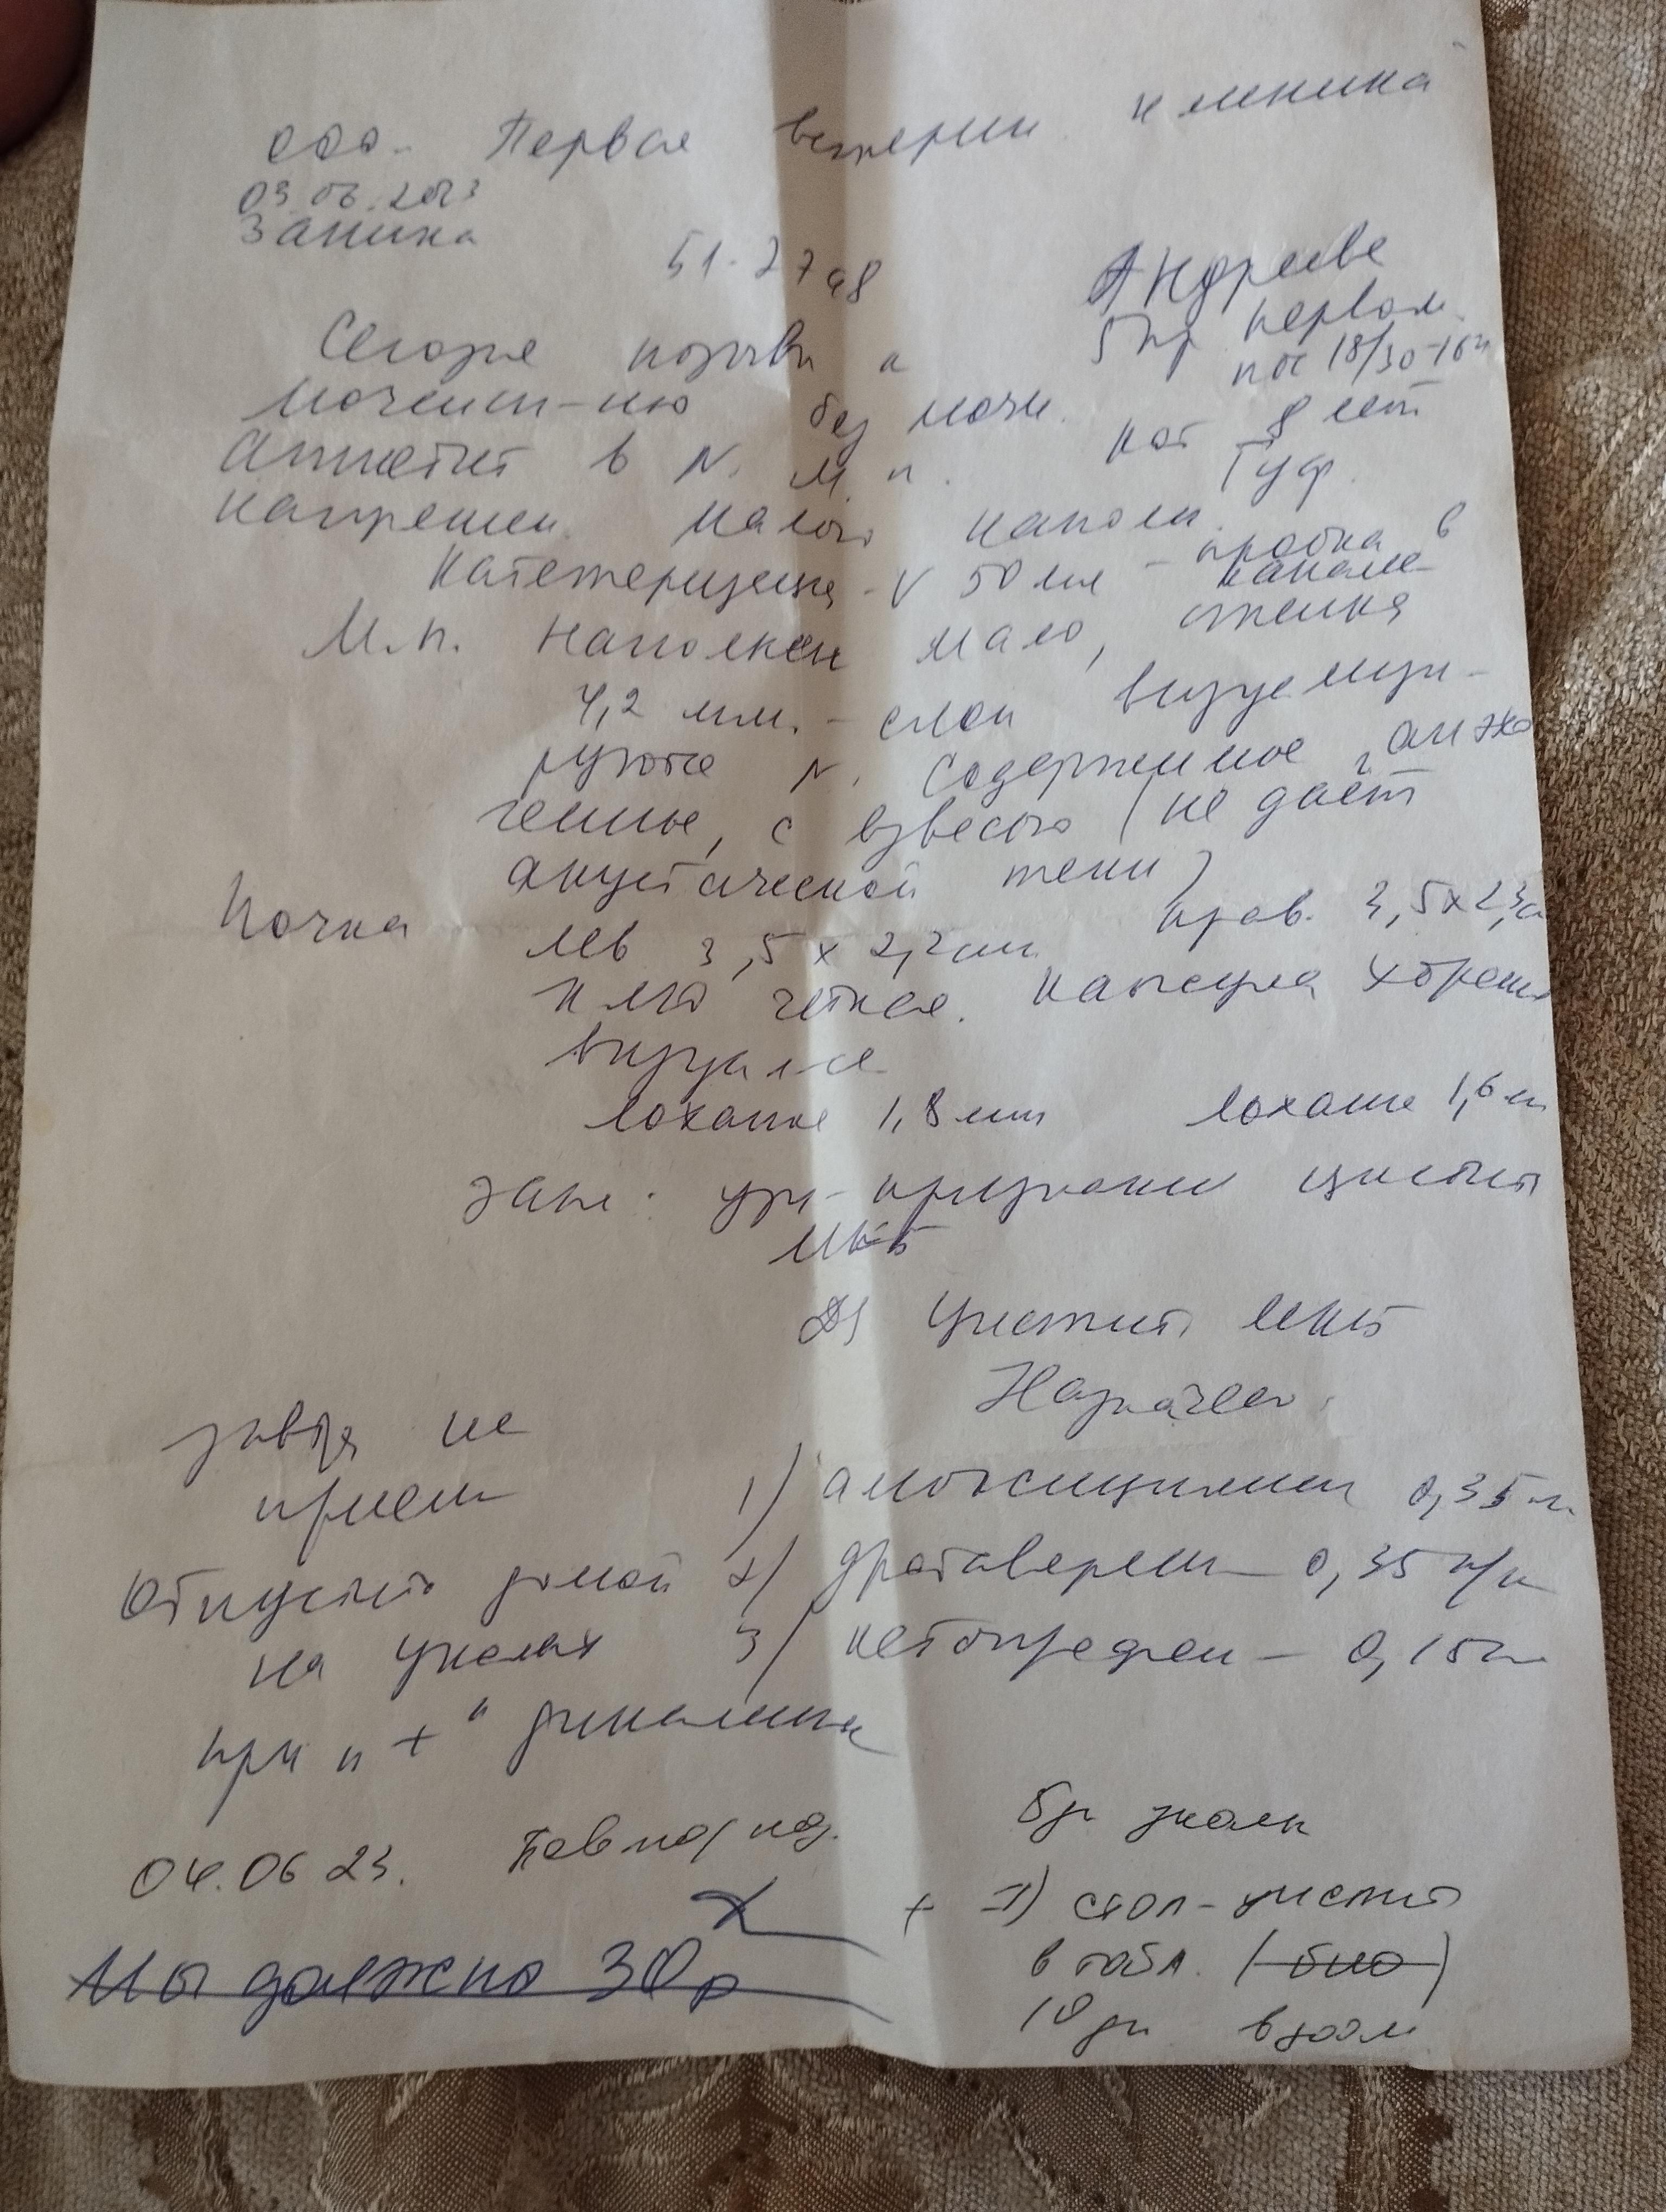 ООО. Первая ветерин. клиника
03.06.2023
Заника
51-27-98
Андреева
5 пр первом.
пос 18/30-16ч
Сегодня позывы к
мочеисп-нию без мочи.
кот 8 лет
Аппетит в N. М.п.
Гуф.
напряжен. мало наполн.
Катетеризация - V 50 мл - пробка в канале
М.п. наполнен мало, стенка
4,2 мм. - слои визуализи-
руются N. Содержимое анэхо
генное, с взвесью (не даёт
акустической тени)
Почка лев 3,5 х 2,2 см прав. 3,5х2,3с
КМД четкая. Капсула хорошо
визуал-ся
лоханка 1,8 мм лоханка 1,6 м
Закл: узи-признаки цистита
МКБ
Ds Цистит МКБ
Назначено:
завтра на
прием
1) амоксициллин 0,35 м
Отпустить домой
2) дротаверин - 0,35 п/к
на уколах
3) кетопрофен - 0,15
при "+" динамике
04.06 23. Повт под наз.
5 дн уколы
+ II) стоп-цистит
в табл. (био)
10 дн
Мы должны 30 р